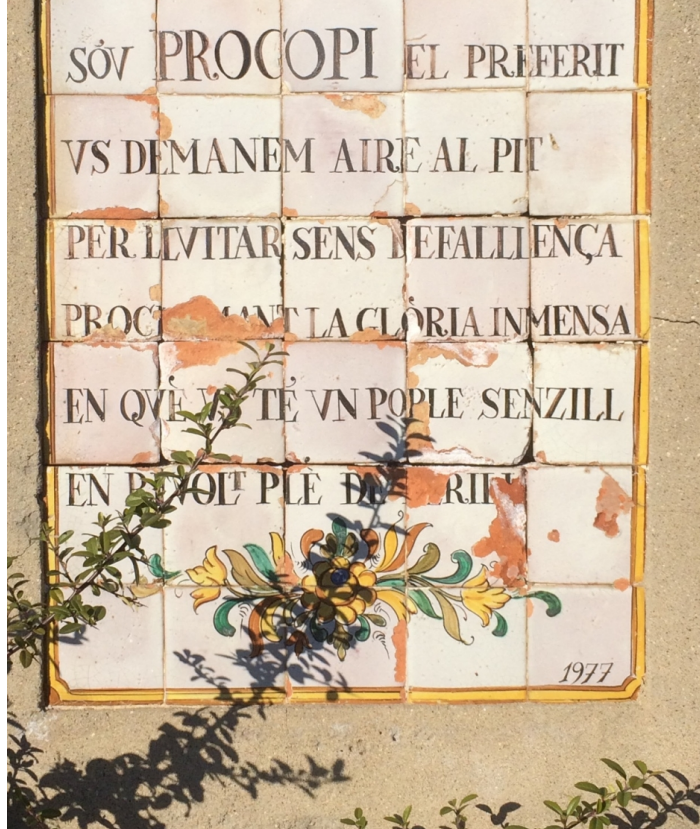 SÓV PROCOPI EL PREFERIT
VS DEMANEM AIRE AL PIT
PER LEVITAR SENS DEFALLENÇA
LA GLÒRIA INMENSA
EN QVÈ VS TÉ VN POPLE SENZILL
EN PLÈ
1977